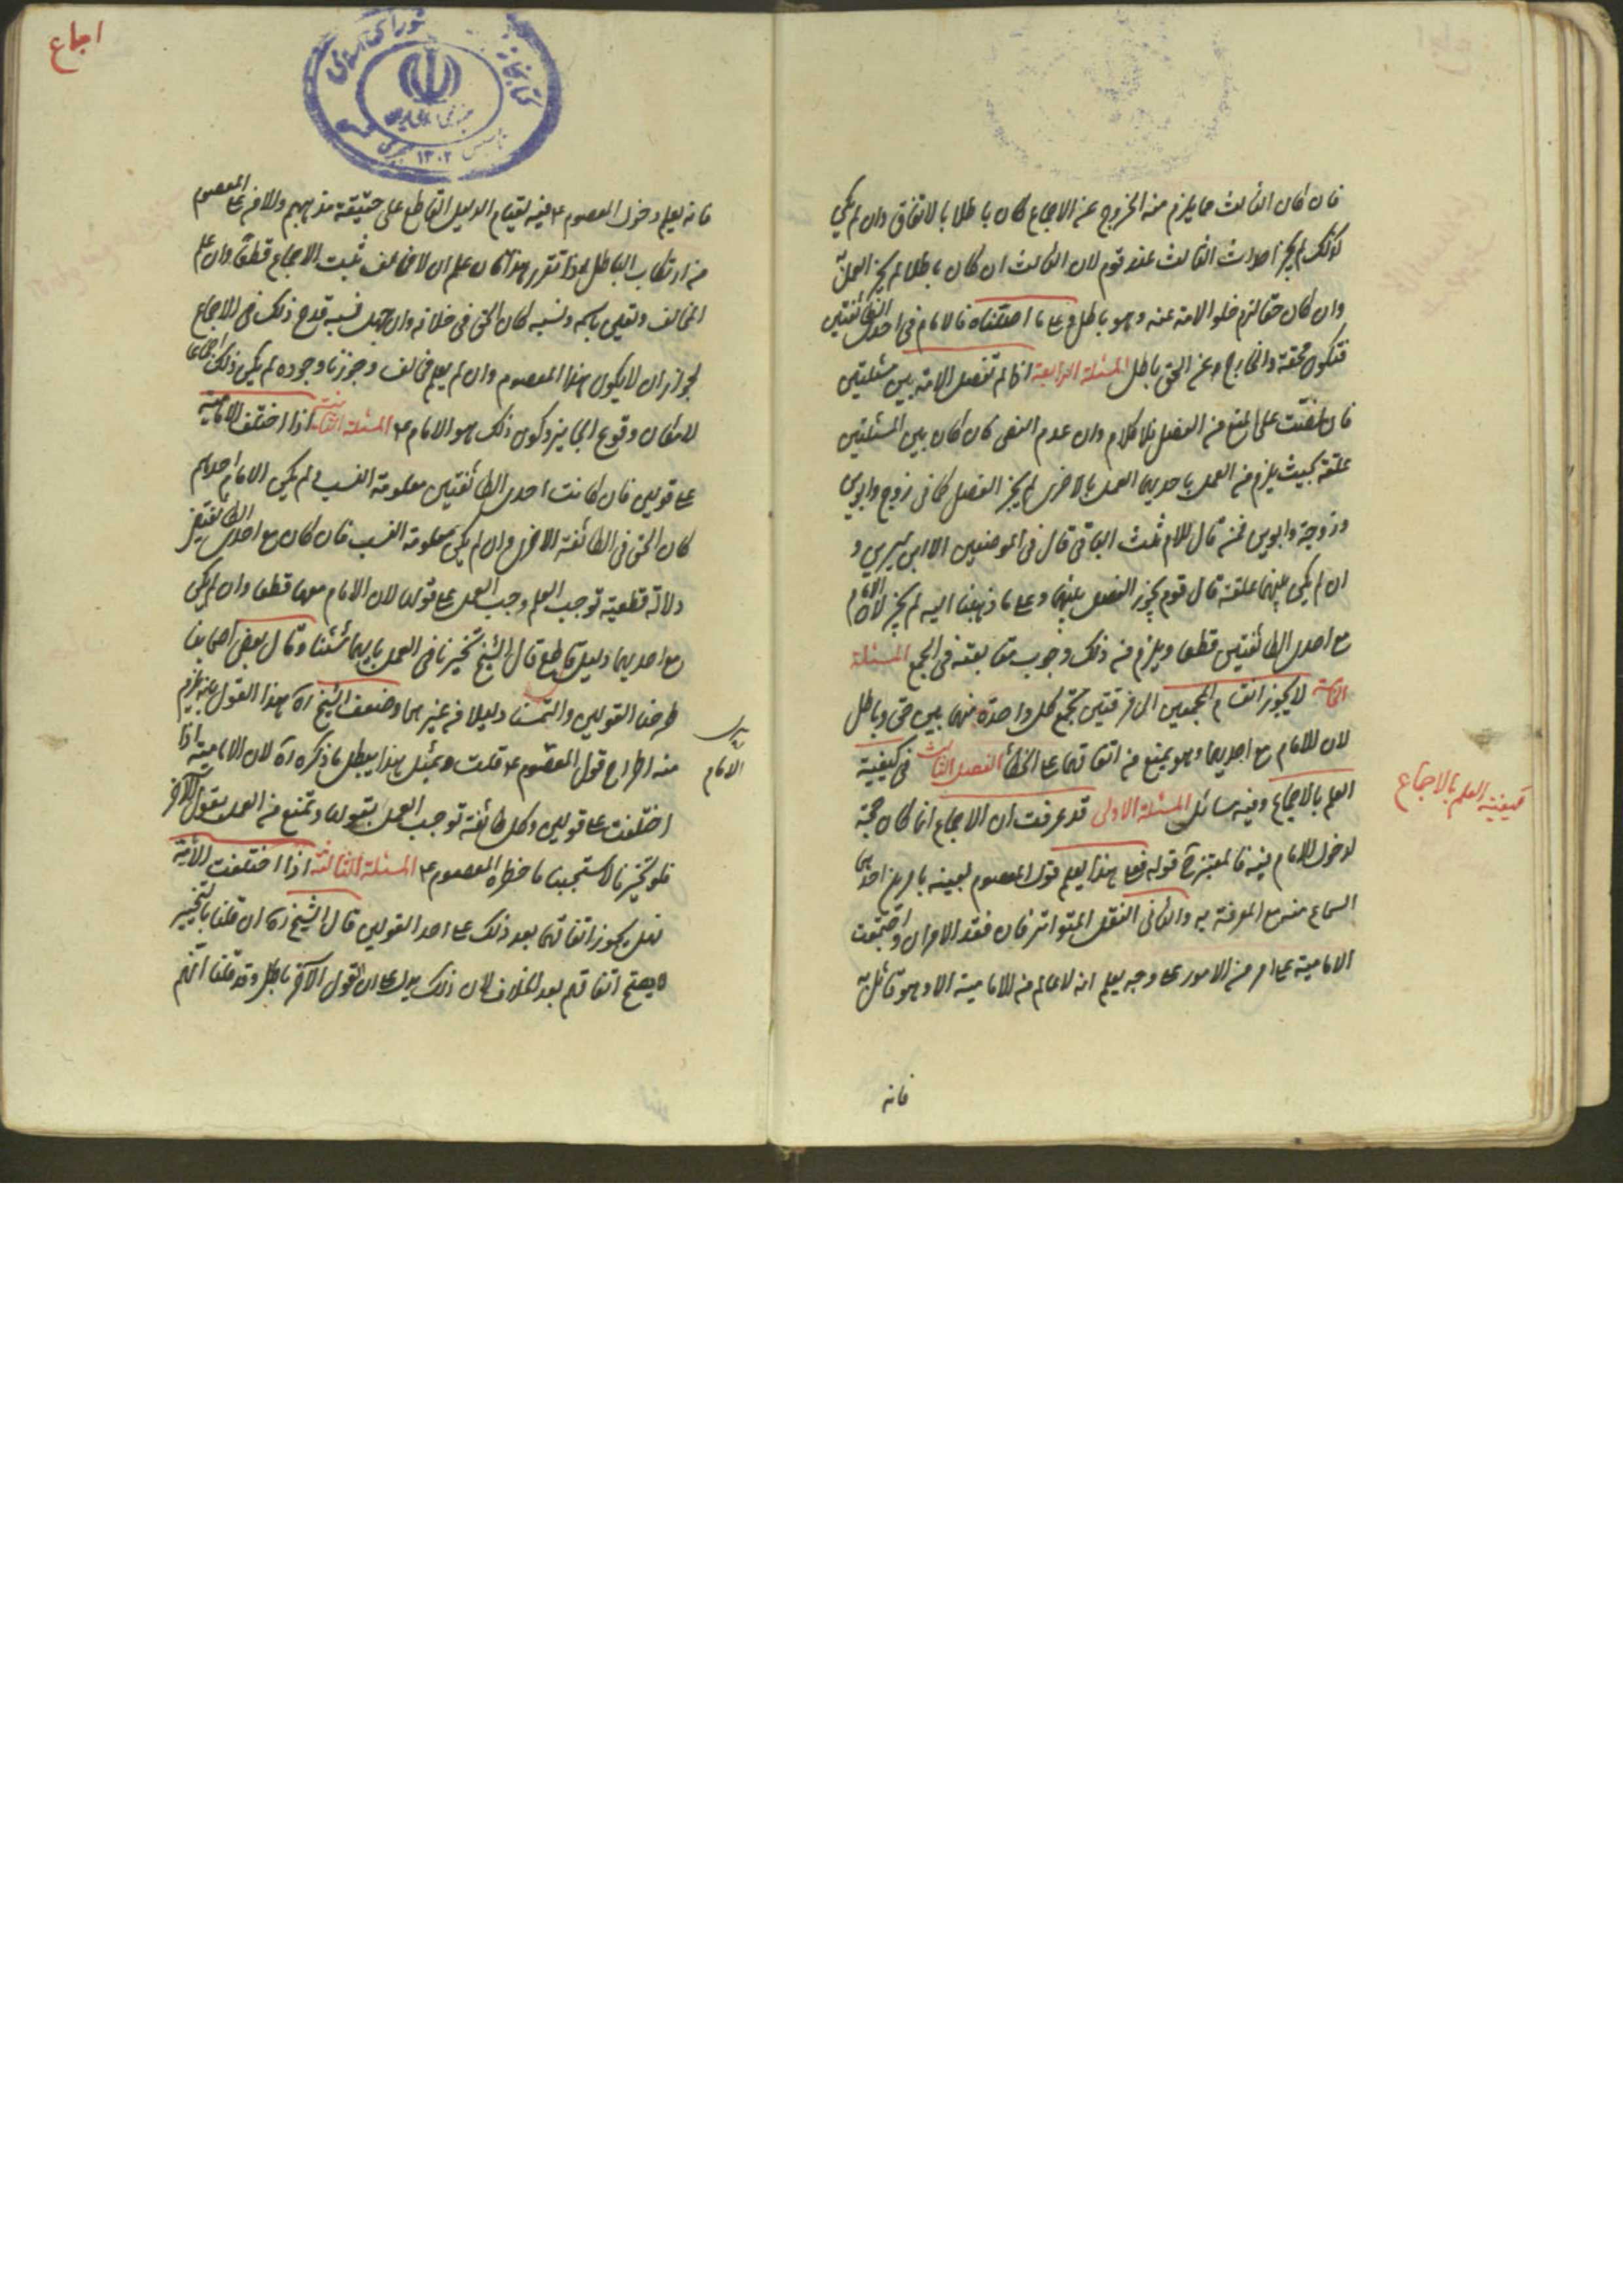 فان كان الثالث مما يلزم منه الخروج عن الاجماع كان باطلا بالاتفاق وان لم يكن
كذلك لم يجز احداث الثالث عند قوم لان الثالث ان كان باطلا لم يجز العمل به
وان كان حقا لزم خلو الامة عنه وهو باطل وعلى ما اصلناه فالامام فى احدى الطائفتين
فتكون محقة والخارج عن الحق باطل المسئلة الرابعة اذا لم تفصل الامة بين مسئلتين
فان نصت على المنع من الفصل فلا كلام وان عدم النص فان كان بين المسئلتين
علقة بحيث يلزم من العمل باحديهما العمل بالاخرى لم يجز الفصل كما فى زوج وابوين
وزوجة وابوين فمن قال للام ثلث الباقى قال فى الموضعين الا ابن سيرين و
ان لم يكن بينهما علقة قال قوم يجوز الفصل بينهما وعلى ما ذهبنا اليه لم يجز لان الامام
مع احدى الطائفتين قطعا ويلزم من ذلك وجوب متابعته فى الجمع المسئلة
الخامسة لا يجوز انقسام المجمعين الى فرقتين تجمع كل واحدة منهما بين حق وباطل
لان الامام مع احديهما وهو يمنع من اتفاقهما على الخطأ الفصل الثالث فى كيفية
العلم بالاجماع وفيه مسائل المسئلة الاولى قد عرفت ان الاجماع انما كان حجة
لدخول الامام فيه فالمعتبر ح قوله فعلى هذا يعلم قول المعصوم بعينه بامرين احدهما
السماع منه مع المعرفة به والثانى النقل المتواتر فان فقد الامران واجتمعت
الامامية على امر من الامور على وجه يعلم انه لا عالم من الامامية الا وهو قائل به
فانه
كيفية العلم بالاجماع
اجماع
فانه يعلم دخول المعصوم ع فيه لقيام الدليل القاطع على حقيقة مذهبهم والامن على المعصوم
من ارتكاب الباطل اذا تقرر هذا فان علم ان لا مخالف ثبت الاجماع قطعا وان علم
المخالف وتعين باسمه ونسبه كان الحق فى خلافه وان جهل نسبه قدح ذلك فى الاجماع
لجواز ان يكون هذا المعصوم وان لم يعلم مخالف وجوزنا وجوده لم يكن ذلك اجماعا
لامكان وقوع الجايز وكون ذلك هو الامام ع المسئلة الثانية اذا اختلف الامامية
على قولين فان كانت احدى الطائفتين معلومة النسب ولم يكن الامام احدهم
كان الحق فى الطائفة الاخرى وان لم يكن معلومة النسب فان كان مع احدى الطائفتين
دلالة قطعية توجب العلم وجب العمل على قولها لان الامام معها قطعا وان لم يكن
مع احديهما دليل قاطع قال الشيخ تخيرنا فى العمل بايهما شئنا وقال بعض اصحابنا
طرحنا القولين والتمسنا دليلا من غيرهما وضعف الشيخ ره هذا القول بانه يلزم
منه اطراح قول المعصوم ع قلت وبمثل هذا يبطل ما ذكره ره لان الامامية اذا
اختلفت على قولين وكل طائفة توجب العمل بقولها وتمنع من العمل بقول الآخر
فلو تخيرنا لاستبحنا ما حظره المعصوم ع المسئلة الثالثة اذا اختلفت الامامية
فهل يجوز اتفاقها بعد ذلك على احد القولين قال الشيخ ره ان قلنا بالتخيير
لم يصح اتفاقهم بعد الخلاف لان ذلك يدل على ان القول الآخر باطل وقد قلنا انهم
الامام